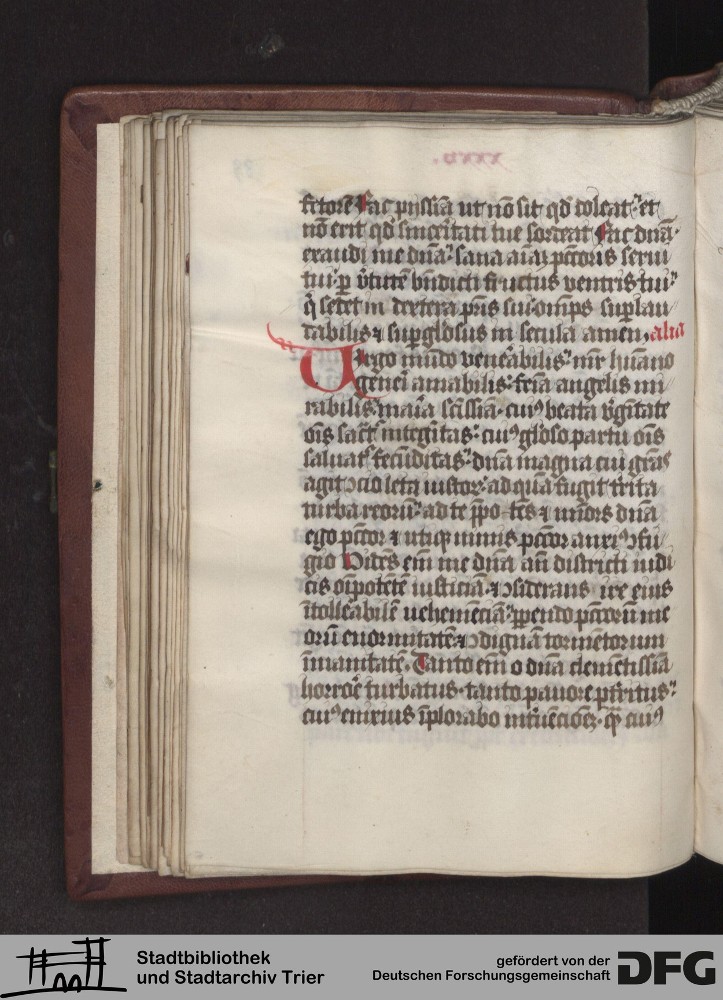 fetorē Fac pyssīa ut nō sit qd doleat et
nō erit qd sinceritati tue sordeat Fac dnā
exaudi me dnā sana aīaȝ pctoris serui
tui p v̄tutē bn̄dicti fructus ventris tui
q̄ sedet in dextera p̄ris sui om̄ps sup laū
dabilis ⁊ supglōsus in secula amen. alia
Virgo mūdo venēabilis mr̄ hūano
genei amabilis feīa angelis mi
rabilis maīa sc̄issīa cuiꝰ beata v̄gitate
oīs sac̄t integitas cuiꝰ glōso partu oīs
saluat fecūditas dnā magna cui grās
agit ↄcio letā iustoꝝ ad quā fugit trita
turba reorū ad te ppotēs ⁊ mīors dnā
ego pctor ⁊ utiqȝ nimis pctor anxiꝰ ↄfu
gio Vidēs em̄ me dnā an̄ districti iudi
cis oīpotētē iusticiā ⁊ ↄsiderans ire eius
ītolleābilē uehemēciā ppendo pctorū me
orū enormitatē ⁊ ↄdignā tormētorum
īmanitatē. Tanto em̄ o dnā clemētissīa
horroē turbatus tanto pauore pt̄ritus
cuiꝰ enixius īplorabo int̄uēcionē. qȝ cuiꝰ
Stadtbibliothek
und Stadtarchiv Trier
gefördert von der
Deutschen Forschungsgemeinschaft
DFG